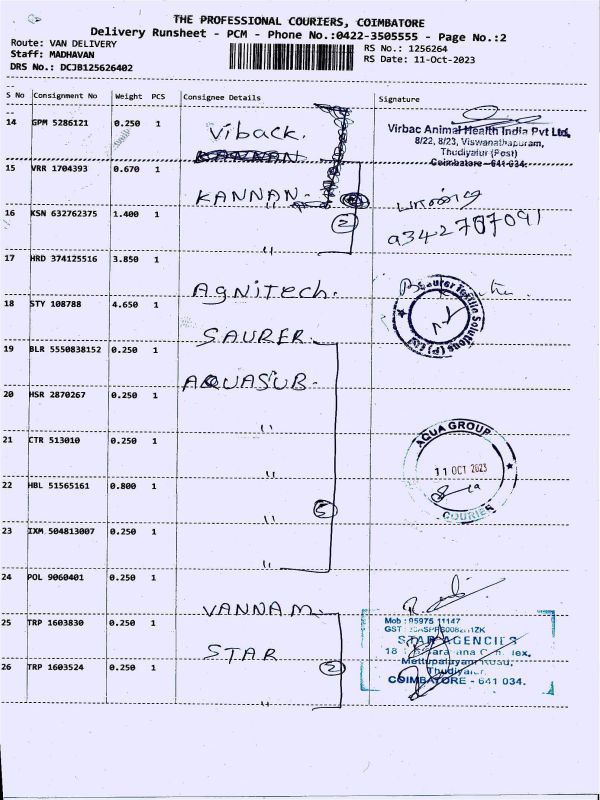 THE PROFESSIONAL COURIERS, COIMBATORE
Delivery Runsheet - PCM - Phone No.:0422-3505555 - Page No.:2
Route: VAN DELIVERY
Staff: MADHAVAN
DRS No.: DCJB125626402
RS No.: 1256264
RS Date: 11-Oct-2023
S No Consignment No Weight PCS Consignee Details Signature
14 GPM 5286121 0.250 1 Viback.
Virbac Animal Health India Pvt Ltd,
8/22, 8/23, Viswanathapuram,
Thudiyalur (Post)
Coimbatore - 641 034.
KANNAN
15 VRR 1704393 0.670 1 KANNAN.
16 KSN 632762375 1.400 1 "
2
9342707091
17 HRD 374125516 3.850 1 AGNITECH.
18 STY 108788 4.650 1 SAURER.
Saurer Textile Solutions (P) Ltd
19 BLR 5550838152 0.250 1 AQUASUB.
20 HSR 2870267 0.250 1 "
21 CTR 513010 0.250 1 "
AQUA GROUP
11 OCT 2023
COURIER
22 HBL 51565161 0.800 1 "
5
23 IXM 504813007 0.250 1 "
24 POL 9060401 0.250 1 VANNAM.
25 TRP 1603830 0.250 1 STAR
26 TRP 1603524 0.250 1 "
2
Mob : 95975 11147
GST :
STAR AGENCIES
Mettupalayam Road,
Thudiyalur,
COIMBATORE - 641 034.